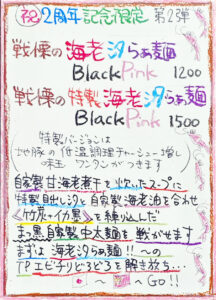 祝 2周年記念限定 第2弾
戦慄の海老汐らぁ麺
BlackPink 1200
戦慄の特製海老汐らぁ麺
BlackPink 1500
特製バージョンは
地豚の低温調理チャーシュー増し
味玉 ワンタンがつきます
自家製甘海老煮干を炊いたスープに
特製出しシオと自家製海老油を合わせ
《竹炭+イカ黒》を練り込んだ
まっ黒自家製中太麺を戦がせます
まずは海老汐らぁ麺!! への
TPエビチリどろどろを解き放ち...
GO!!